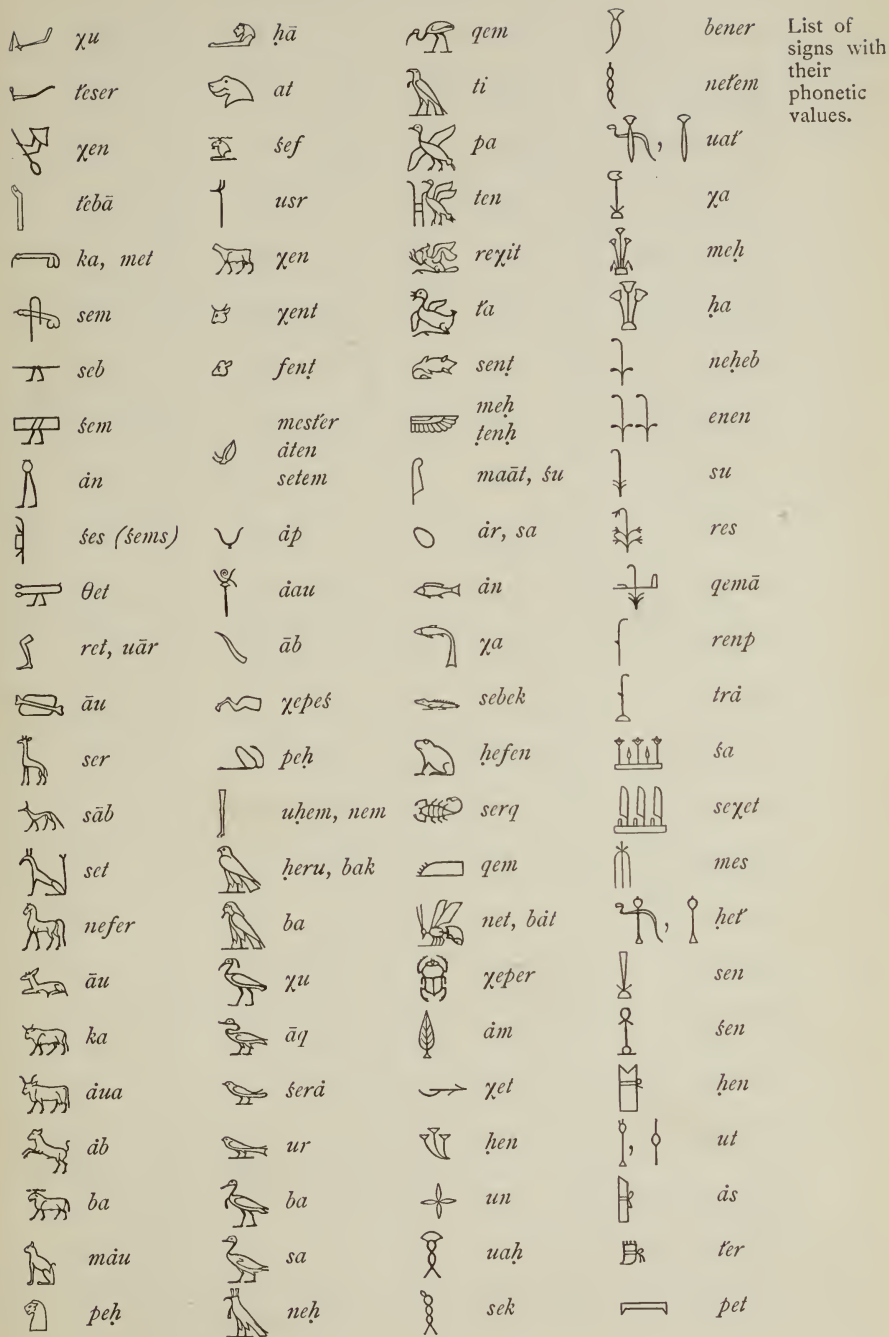 χu
t́eser
χen
t́ebā
ka, met
sem
seb
śem
ȧn
śes (śems)
θet
ret, uār
āu
ser
sāb
set
nefer
āu
ka
ȧua
ȧb
ba
mȧu
peḥ
ḥā
at
śef
usr
χen
χent
fenṭ
mest́er
ȧten
setem
ȧp
ȧau
āb
χepeś
peḥ
uḥem, nem
ḥeru, bak
ba
χu
āq
śerȧ
ur
ba
sa
neḥ
qem
ti
pa
ten
reχit
t́a
senṭ
meḥ
ṭenḥ
maāt, śu
ȧr, sa
ȧn
χa
sebek
ḥefen
serq
qem
net, bȧt
χeper
ȧm
χet
ḥen
un
uaḥ
sek
bener
net́em
, uat́
χa
meḥ
ḥa
neḥeb
enen
su
res
qemā
renp
trȧ
śa
seχet
mes
, ḥet́
sen
śen
ḥen
, ut
ȧs
t́er
pet
List of
signs with
their
phonetic
values.